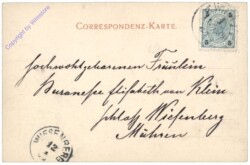 Copyright by oldthing
CORRESPONDENZ-KARTE.
5 5
Hochwohlgeborenen Fräulein
Baronesse Elisabeth von Klein
Schloß Wiesenberg
Mähren
WIESENBERG
12